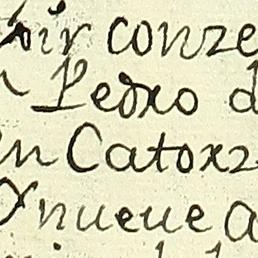 oir conze
Pedro d
en Catorz
nueue a